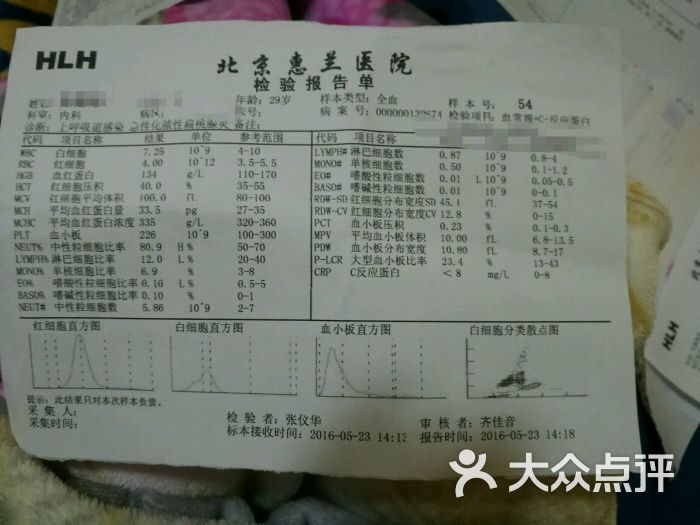 HLH
北京惠兰医院
检验报告单
姓名: 年龄: 29岁 样本类型: 全血 样本号: 54
科室: 内科 病区: 病案号: 检验项目: 血常规+C-反应蛋白
诊断: 上呼吸道感染 急性化脓性扁桃腺炎 备注:
代码 项目名称 结果 单位 参考范围
WBC 白细胞 7.25 10^9 4-10
RBC 红细胞 4.00 10^12 3.5-5.5
HGB 血红蛋白 134 g/L 110-170
HCT 红细胞压积 40.0 % 35-55
MCV 红细胞平均体积 100.0 fL 80-100
MCH 平均血红蛋白量 33.5 pg 27-35
MCHC 平均血红蛋白浓度 335 g/L 320-360
PLT 血小板 226 10^9 100-300
NEUT% 中性粒细胞比率 80.9 H % 50-70
LYMPH% 淋巴细胞比率 12.0 L % 20-40
MONO% 单核细胞比率 6.9 % 3-8
EO% 嗜酸性粒细胞比率 0.10 L % 0.5-5
BASO% 嗜碱性粒细胞比率 0.10 % 0-1
NEUT# 中性粒细胞数 5.86 10^9 2-7
代码 项目名称
LYMPH# 淋巴细胞数 0.87 10^9 0.8-4
MONO# 单核细胞数 0.50 10^9 0.1-1.2
EO# 嗜酸性粒细胞数 0.01 L 10^9 0.05-0.5
BASO# 嗜碱性粒细胞数 0.01 10^9 0-0.1
RDW-SD 红细胞分布宽度SD 45. fL 37-54
RDW-CV 红细胞分布宽度CV 12.8 % 0-15
PCT 血小板压积 0.23 %
MPV 平均血小板体积 10.00 fL 6.8-13.5
PDW 血小板分布宽度 10.80 fL 8.7-17
P-LCR 大型血小板比率 23.4 % 13-43
CRP C反应蛋白 <8 mg/L 0-8
红细胞直方图 白细胞直方图 血小板直方图 白细胞分类散点图
提示: 此结果只对本次样本负责.
采集人: 检验者: 张仪华 审核者: 齐佳音
采集时间: 标本接收时间: 2016-05-23 14:13 报告时间: 2016-05-23 14:18
HLH
大众点评